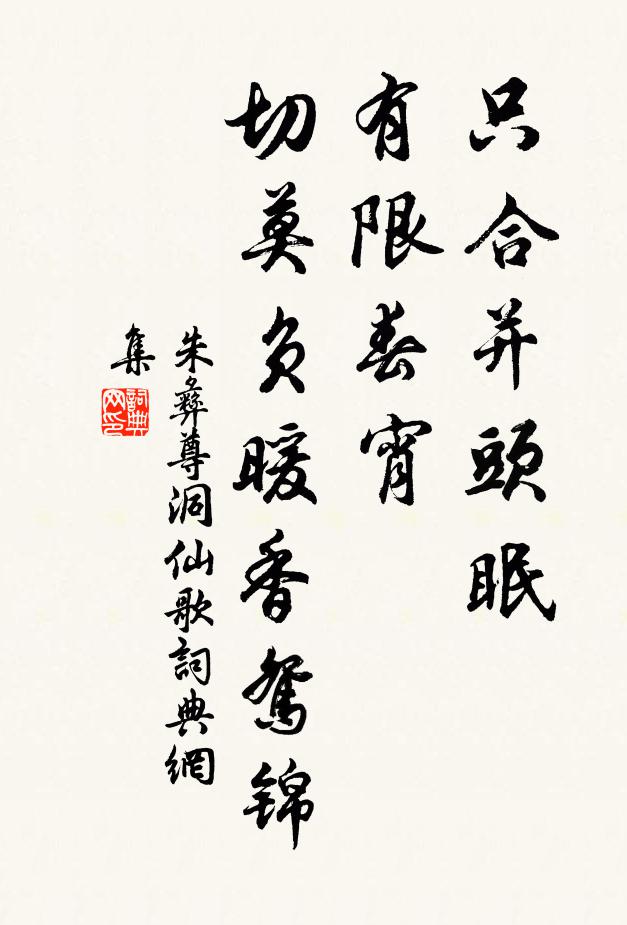 只合并頭眠
有限春宵
切莫负暖香鴛锦
朱彝尊洞仙歌詞典網
集
詞典网印